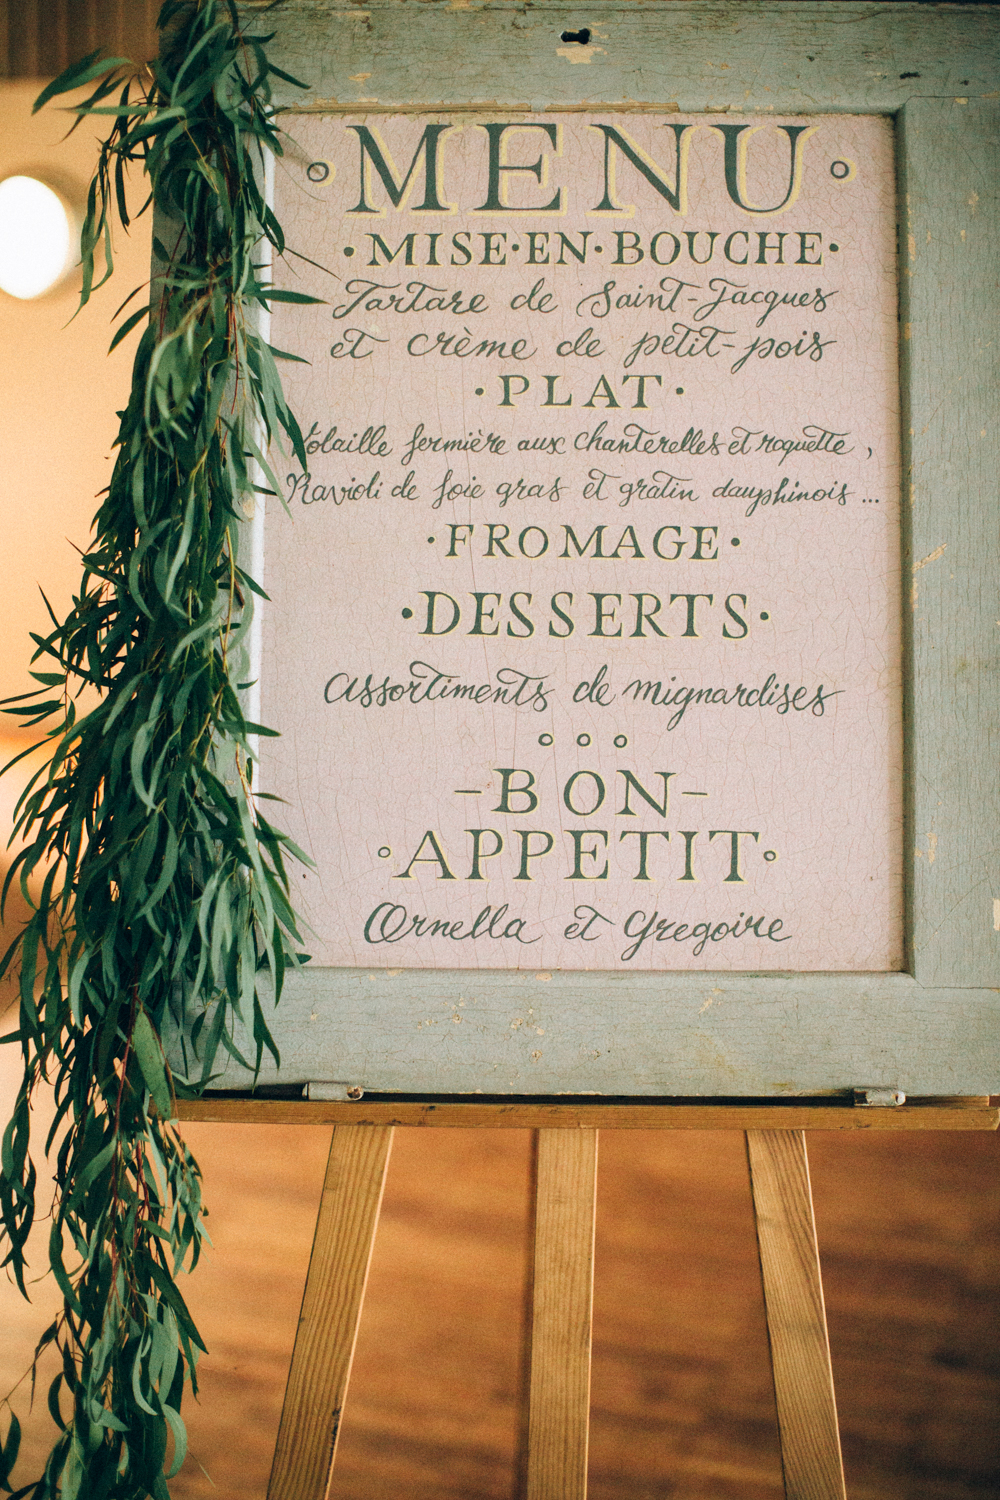 MENU
MISE·EN·BOUCHE
Tartare de Saint-Jacques
et crème de petit-pois
PLAT
Volaille fermière aux chanterelles et roquette ,
Ravioli de foie gras et gratin dauphinois ...
FROMAGE
DESSERTS
Assortiments de mignardises
-BON-
APPETIT
Ornella et Gregoire